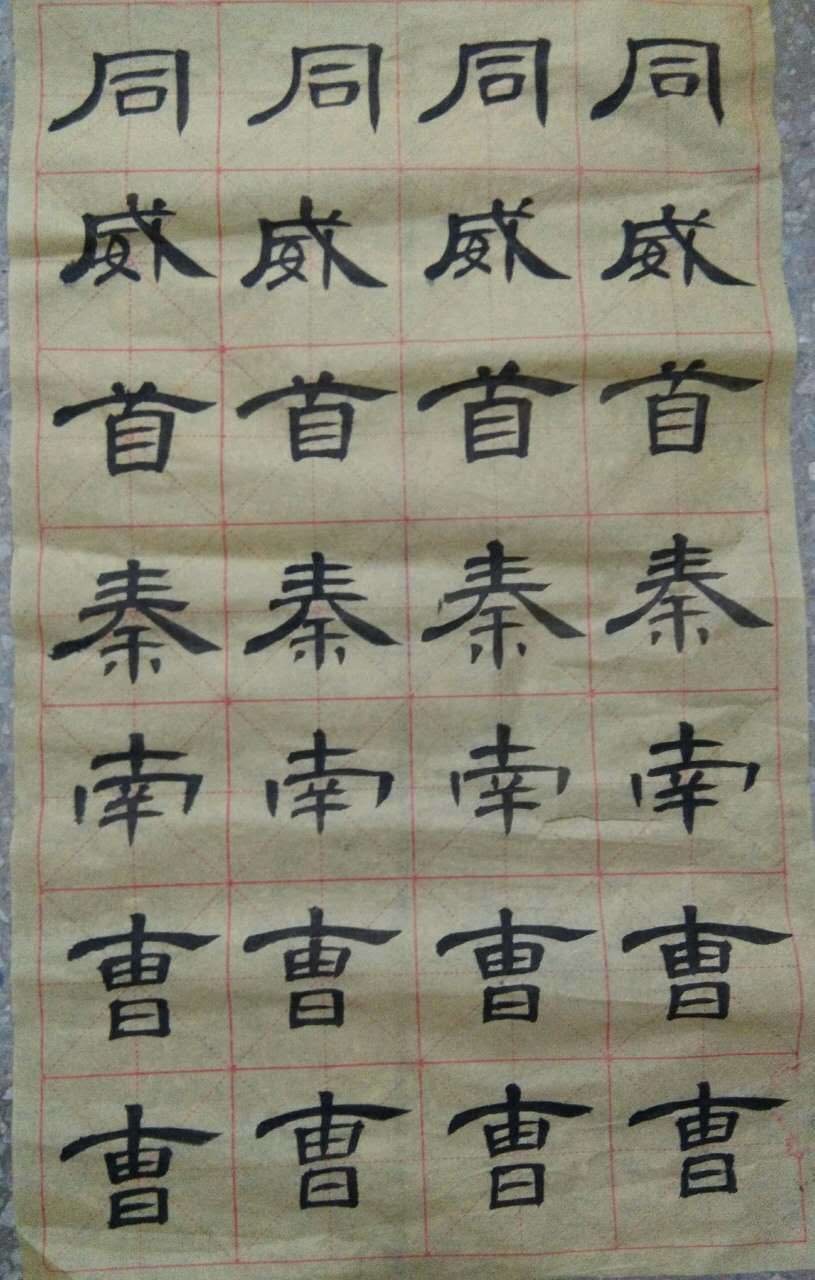 同同同同
威威威威
首首首首
秦秦秦秦
南南南南
曹曹曹曹
曹曹曹曹